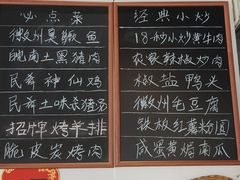 必点菜
徽州臭鳜鱼
皖南土黑猪肉
民斋神仙鸡
民斋土味杀猪汤
招牌烤羊排
脆皮炭烤肉
经典小炒
18秒小炒黄牛肉
农家辣椒炒肉
椒盐鸭头
徽州毛豆腐
铁板红薯粉圆
咸蛋黄焗南瓜